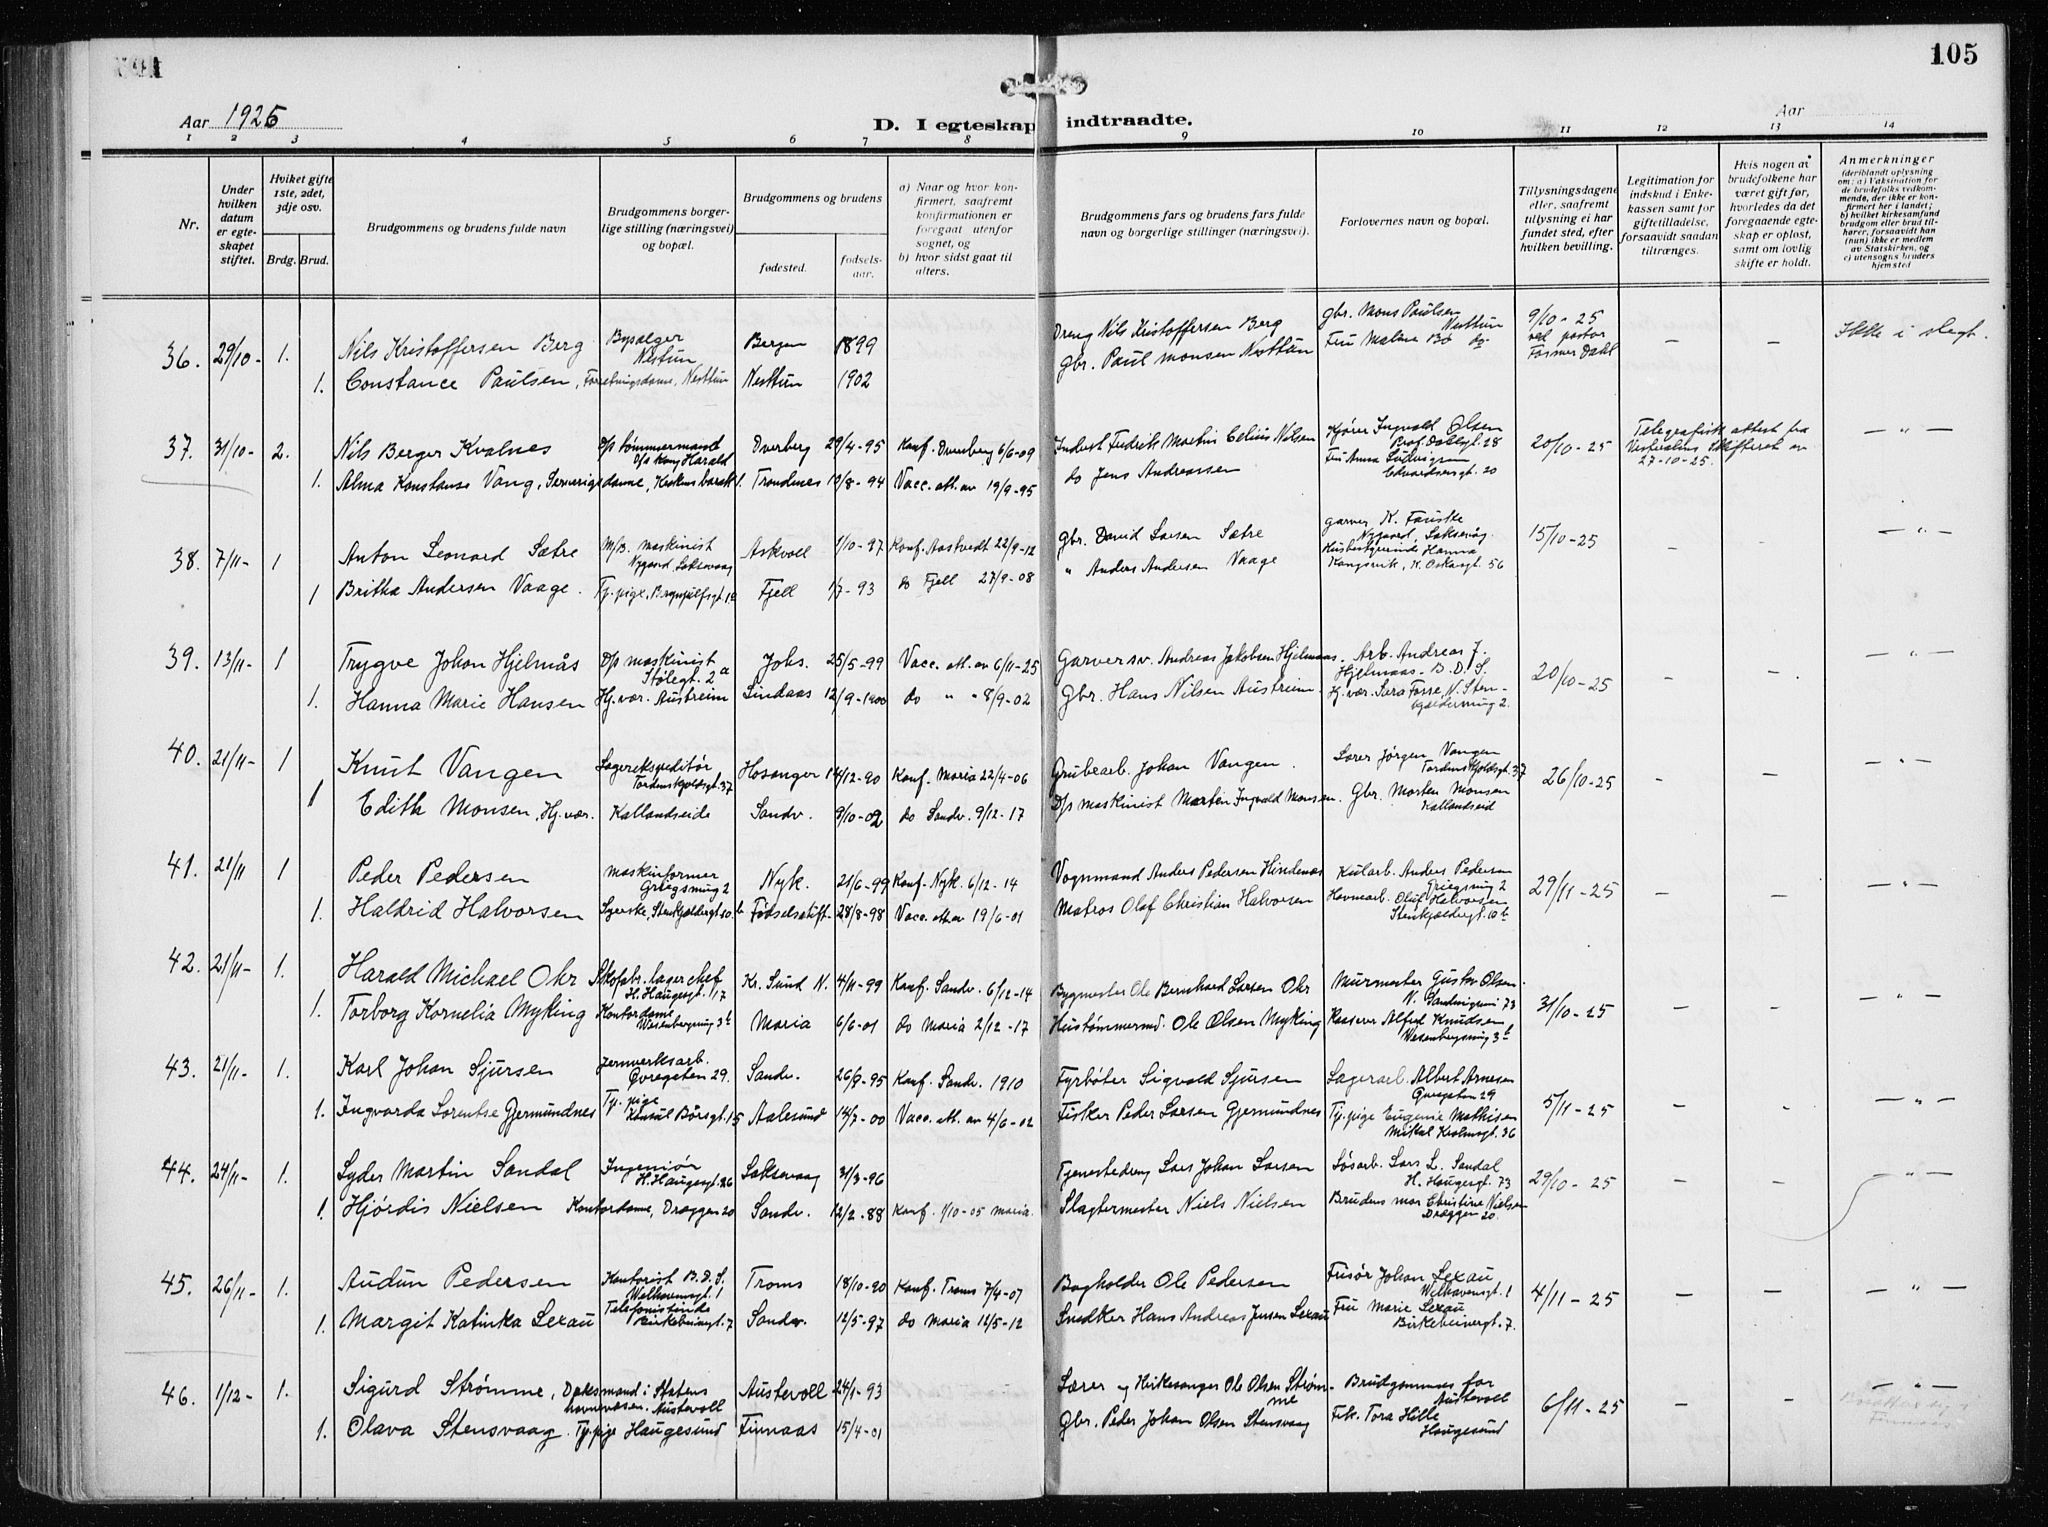 105
Aar 1925
D. I egteskap indtraadte.
Aar
1 2 3 4 5 6 7 8 9 10 11 12 13 14
Nr.
Under hvilken datum er egteskapet stiftet.
Hviket gifte 1ste, 2det, 3dje osv.
Brdg. Brud.
Brudgommens og brudens fulde navn
Brudgommens borgerlige stilling (næringsvei) og bopæl.
Brudgommens og brudens
fødested.
fødselsaar.
a) Naar og hvor konfirmert, saafremt konfirmationen er foregaat utenfor sognet, og
b) hvor sidst gaat til alters.
Brudgommens fars og brudens fars fulde navn og borgerlige stillinger (næringsvei).
Forlovernes navn og bopæl.
Tillysningsdagene eller, saafremt tillysning ei har fundet sted, efter hvilken bevilling.
Legitimation for indskud i Enkekassen samt for giftetilladelse, forsaavidt saadan tiltrænges.
Hvis nogen av brudefolkene har været gift før, hvorledes da det foregaaende egteskap er opløst, samt om lovlig skifte er holdt.
Anmerkninger (deriblandt oplysning om: a) Vaksination for de brudefolks vedkommende, der ikke er konfirmert her i landet; b) hvilket kirkesamfund brudgom eller brud tilhører, forsaavidt han (hun) ikke er medlem av Statskirken, og c) utensogns bruders hjemsted
36. 29/10- 1. Nils Kristoffersen Berg Bysælger Nestun Bergen 1899 Dreng Nils Kristoffersen Berg gbr. Mons Paulsen Nesttun 9/10-25 ved pastor Former Dahl — — Ikke i slegt.
1. Constance Paulsen, Forretningsdame, Nesttun Nesttun 1902 Gbr. Paul Monsen Nesttun Fru Malene Bø do
37. 31/10- 2. Nils Berger Kvalnes D/s tømmermand D/s Kong Harald Dverberg 29/4-95 Konf. Dverberg 6/6-09 Inderst Fredrik Martin Celius Nilsen Kjører Ingvald Olsen Prof. Dahlsgt. 28 20/10-25 Telegrafisk attest fra Vesteraalens Skifterett av 27-10-25. — " —
1. Alma Konstanse Vang, Serveringsdame, Trondenes 13/8-94 Vacc. att. av 19/9-95 do Jens Andreassen Fru Anna Ludvigsen Edvardsensgt. 20
38. 7/11- 1 Anton Leonard Sætre M/B. maskinist Nygaard, Laksevaag Askvoll 1/10-97 Konf. Aastvedt 22/9-12 gbr. David Larsen Sætre Garver K. Fauske Nygaard, Laksevåg. 15/10-25 — — — " —
1 Britha Andersen Vaage. Tj. pige, Brynjulfsgt. 1a Fjell 1/7-93 do Fjell 27/9-08 " Anders Andersen Vaage Husbestyrerinde Hanna Kongsvik, K. Oskarsgt. 56
39. 13/11- 1 Trygve Johan Hjelmås D/s maskinist Stølegt. 2a Johs. 25/5-99 Vacc. att. av 6/11-25 Garversv. Andreas Jakobsen Hjelmaas. Arb. Andreas J. Hjelmaas. B.D.S. 20/10-25 — — — " —
1. Hanna Marie Hansen Hj. vær. Austreim Lindaas 12/9-1900 do " " 8/9-02 Gbr. Hans Nilsen Austreim. Hj. vær. Sara Fosse, N. Stenkjældersmug 2.
40. 21/11- 1 Knut Vangen Lagerekspeditør Tordenskjoldsgt. 37 Hosanger 14/12-90 Konf. Maria 22/4-06 Grubearb. Johan Vangen. Lærer Jørgen Vangen Tordenskjoldsgt. 37 26/10-25 — — — " —
1 Edith Monsen, Hj. vær. Kallandseide Sandv. 9/10-02 do Sandv. 9/12-17 D/s maskinist Martin Ingvald Monsen. Gbr. Morten Monsen Kallandseid
41. 21/11 1 Peder Pedersen Maskinformer Griegsmug 2 Nyk. 21/6-99 Konf. Nyk. 6/12-14 Vognmand Anders Pedersen Hindenes Kularb. Anders Pedersen Griegsmug 2 29/11-25 — — — " —
1. Haldrid Halvorsen Syerske, Stenkjældergt. 10b Fødselsstift. 28/8-98 Vacc. att av 19/6-01 Matros Olaf Christian Halvorsen Havnearb. Oluf Halvorsen Stenkjældergt. 10b
42. 21/11- 1. Harald Michael Ohr Skofabr. lagerchef H. Haugesgt. 17 Kr. Sund N. 4/11-99 Konf. Sandv. 6/12-14 Bygmester Ole Bernhard Larsen Ohr Murmester Gustav Olsen N. Sandviksvei 73 31/10-25 — — — " —
1. Torborg Kornelia Myking Kontordame Wesenbergsmug 3b Maria 6/6-01 do Maria 2/12-17 Hustømmermd. Ole Olsen Myking Kasserer Alfred Knudsen Wesenbergsmug 3b
43. 21/11- 1. Karl Johan Sjursen Jernverksarb. Øvregaten 29. Sandv. 26/9-95 Konf. Sandv. 1910 Fyrbøter Sigvald Sjursen Lagerarb. Albert Arnesen Øvregaten 29 5/11-25 — — — " —
1. Ingvarda Lorentse Gjermundnes Tj. pige Konsul Børsgt. 15 Aalesund 14/7-00 Vacc. att. av 4/6-02 Fisker Peder Larsen Gjermundnes Tj. pige Eugenie Mathisen Mikal Krohnsgt. 36
44. 24/11- 1. Lyder Martin Sandal Ingeniør H. Haugesgt. 26 Laksevaag 31/3-96 Tjenestedreng Lars Johan Larsen Løsarb. Lars L. Sandal H. Haugesgt. 73 29/10-25 — — — " —
1. Hjørdis Nielsen Kontordame, Dræggen 20 Sandv. 12/2-88 Konf. 1/10-05 Maria. Slagtermester Niels Nielsen Brudens mor Christine Nielsen Dræggen 20.
45. 26/11- 1. Audun Pedersen Kontorist B.D.S. Welhavensgt. 1 Troms 18/10-90 Konf. Troms 7/4-07 Bogholder Ole Pedersen Frisør Johan Lexau Welhavensgt. 1 4/11-25 — — — " —
1. Margit Katinka Lexau Telefonistinde Birkebeinergt. 7 Sandv. 12/5-97 do Maria 12/5-12 Snedker Hans Andreas Jensen Lexau Fru Marie Lexau Birkebeinergt. 7.
46. 1/12- 1. Sigurd Strømme, Opsynsmand i Statens havnevæsen. Austevoll Austevoll 24/1-93 Lærer og Kirkesanger Ole Olsen Strømme Brudgommens far Austevoll 6/11-25 — — — " —
1. Olava Stensvaag. Tj. pige Haugesund Finnaas 15/4-01 Gbr. Peder Johan Olsen Stensvaag Frk. Tora Hille Haugesund